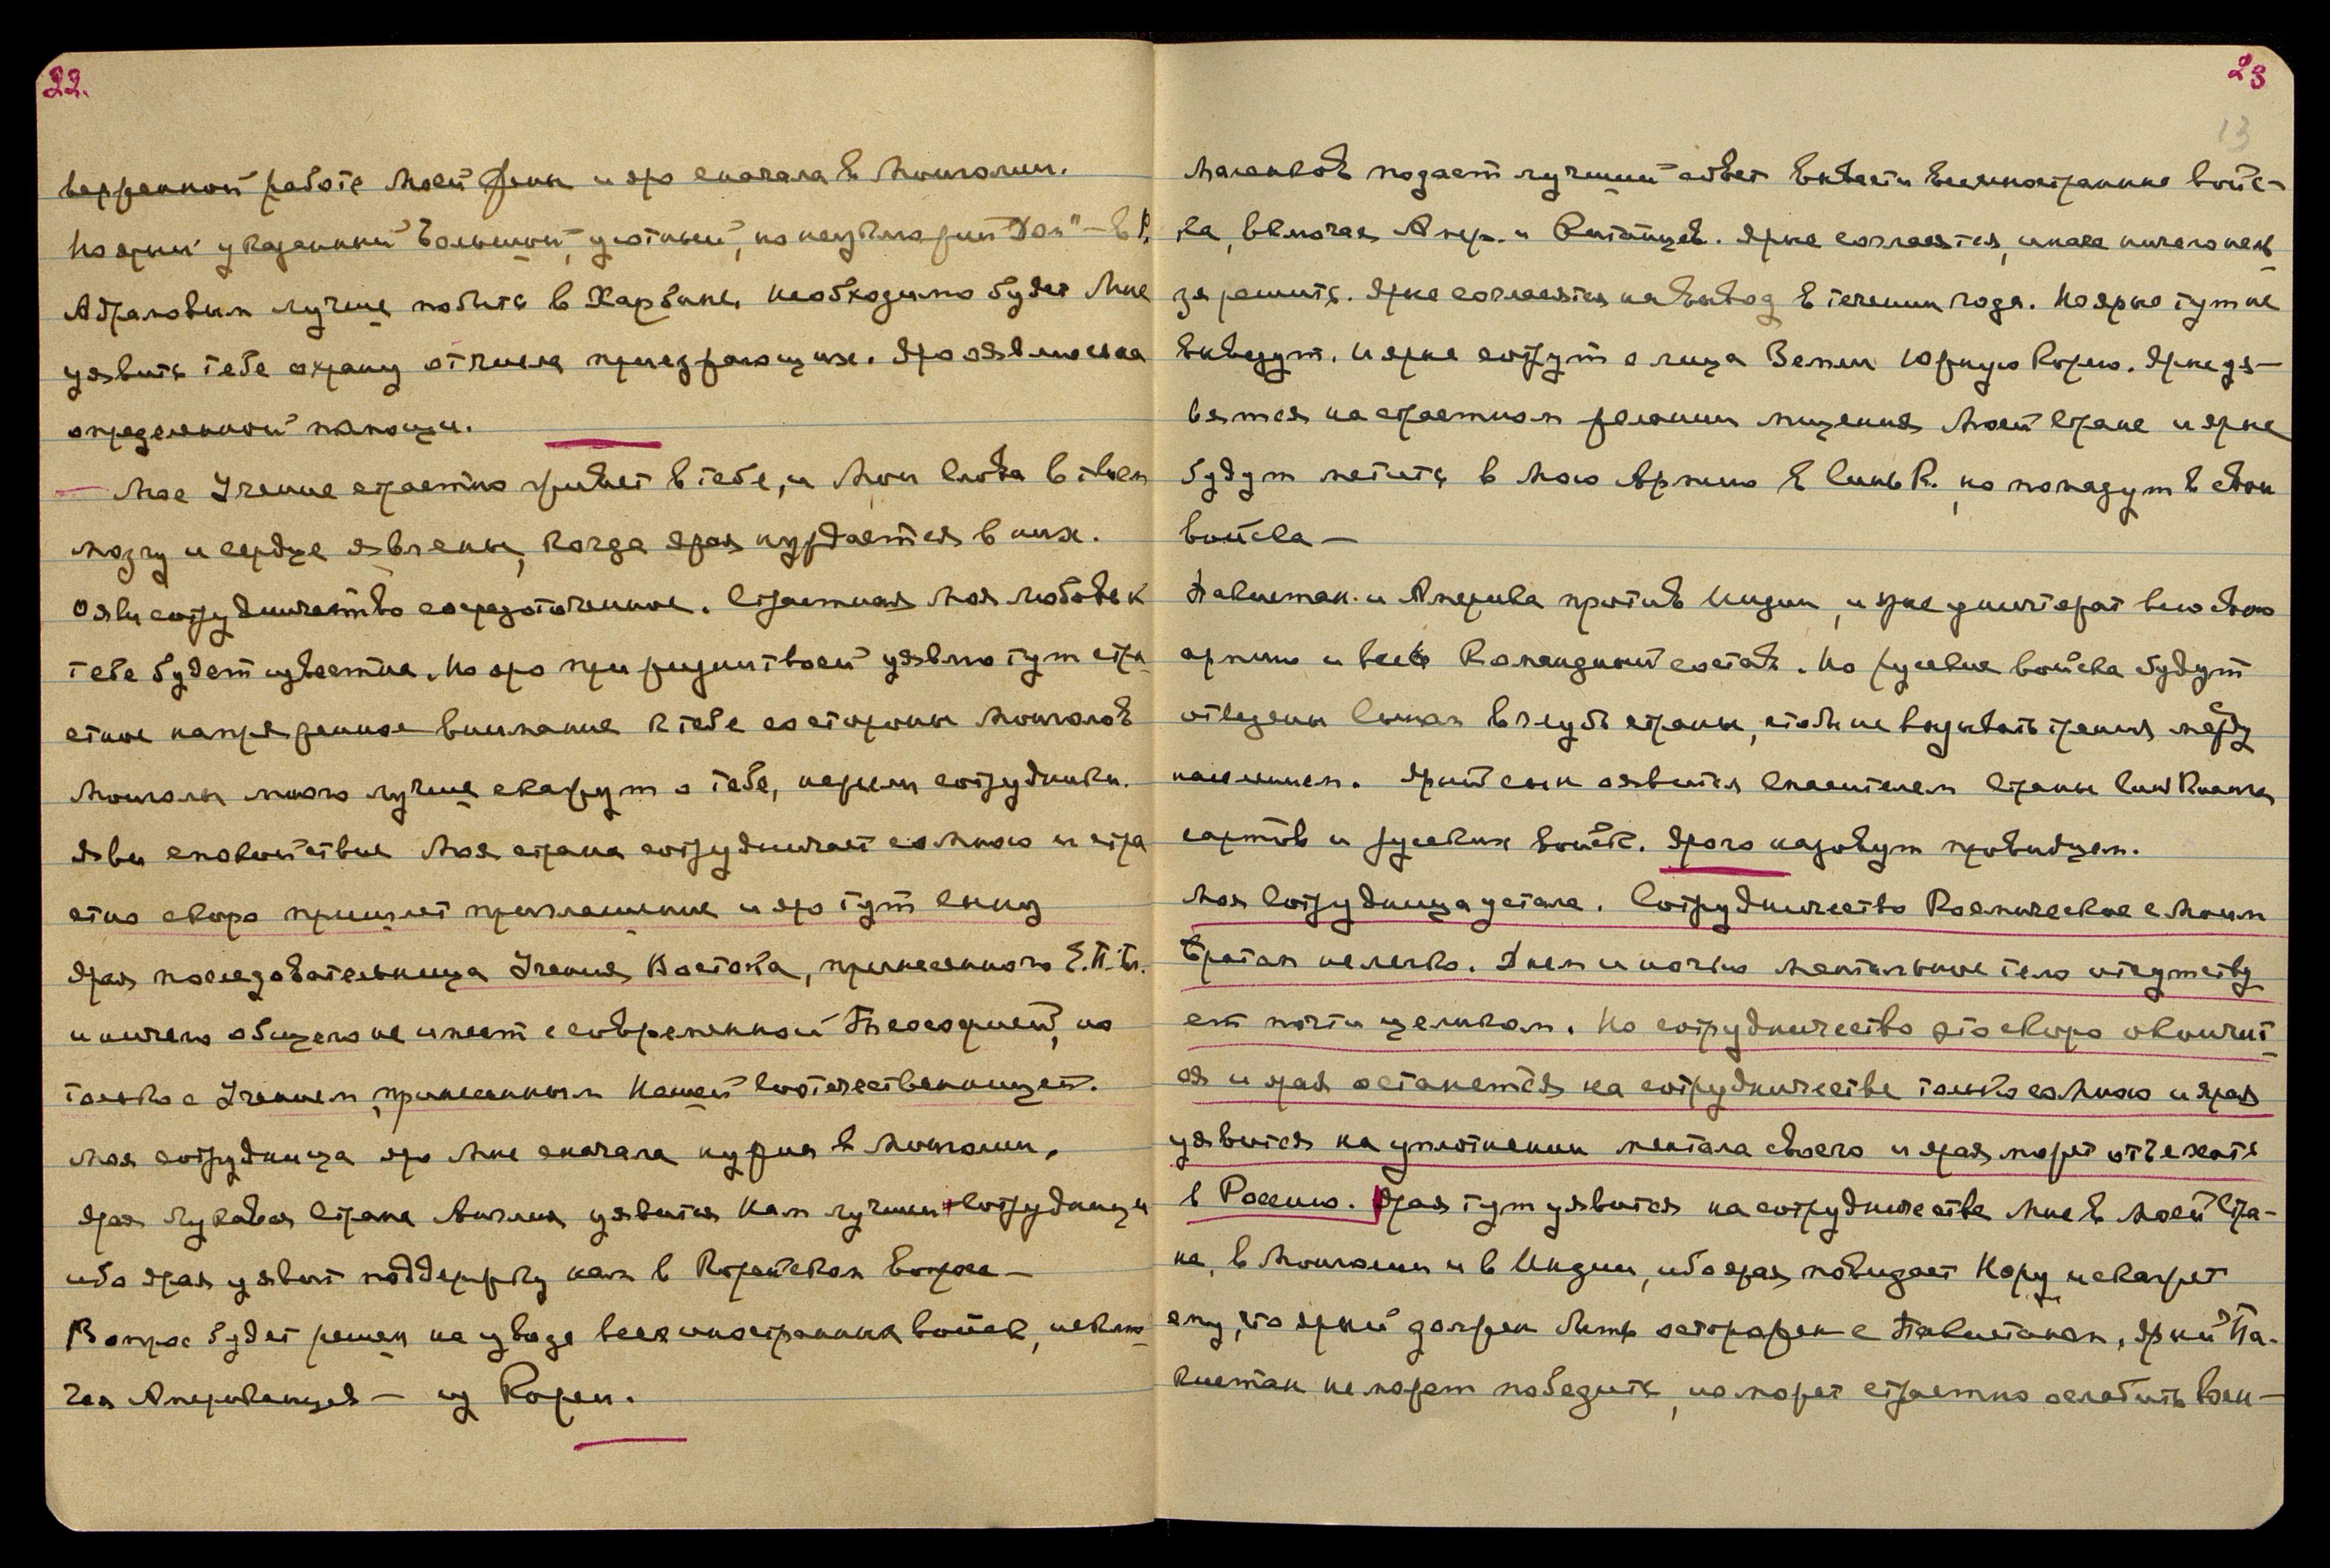 22.
верженной работе Моей Жены и яро сначала в Монголии.
Но ярый указанный большой, уютный, но неуклюжий Дом" – в
Абрамовым лучше побыть в Харбине. Необходимо будет Мне
уявить тебе охрану от числа приезжающих. Яро оявлюсь на
определенной помощи.
Мое Учение страстно живет в тебе, и Мои слова в твоем
мозгу и сердце явлены, когда ярая нуждается в них.
Ояви сотрудничество сосредоточенное. Страстная Моя любовь к
тебе будет известна. Но яро при жизни твоей уявлю тут стра
стное напряженное внимание к тебе со стороны Монголов
Монголы много лучше скажут о тебе, нежели сотрудники.
Яви спокойствие Моя страна сотрудничает со Мною и стра
стно скоро пришлет приглашение и яро тут сниму
Ярая последовательница Учения Востока, принесенного Е.П.Бл.
и ничего общего не имеет с современной Теософией, но
только с Учением, принесенным Нашей соотечественницей.
Моя сотрудница яро Мне сначала нужна в Монголии.
Ярая лукавая страна Англия уявится Нам лучшей сотрудницей
ибо ярая уявит поддержку нам в Корейском Вопросе –
Вопрос будет решен на уводе всех иностранных войск, вклю
чая Американцев – из Кореи.
23
13
Маленков подаст лучший совет вывести все иностранные войс-
ка, включая Амер. и Китайцев. Яркие согласятся, иначе ничего нель
зя решить. Яркие согласятся на вывод в течении года. Но ярко тут не
выведут. И яркие сотрут с лица Земли Южную Корею. Яркие уя-
вятся на страстном желании мщения Моей стране и яркие
будут метить в Мою Армию в Синь К. но попадут в свои
войска –
Пакистан. и Америка против Индии, и яркие уничтожат всю свою
армию и весь Командный состав. Но русские войска будут
отведены Сыном вглубь страны, чтобы не вызывать трения между
населением. Ярый сын оявится спасителем страны Синь Кианга
сартов и русских войск. Ярого назовут провидцем.
Моя сотрудница устала. Сотрудничество Космическое с Моим
Братом нелегко. Днем и ночью ментальное тело отсутству
ет почти целиком. Но сотрудничество это скоро окончит
ся и ярая останется на сотрудничестве только со Мною и ярая
уявится на уплотнении ментала своего и ярая может отъехать
в Россию. Ярая тут уявится на сотрудничестве Мне в Моей Стра-
не, в Монголии и в Индии, ибо ярая повидает Неру и скажет
ему, что ярый должен быть осторожен с Пакистаном. Ярый Па-
кистан не может победить, но может страстно ослабить воен-